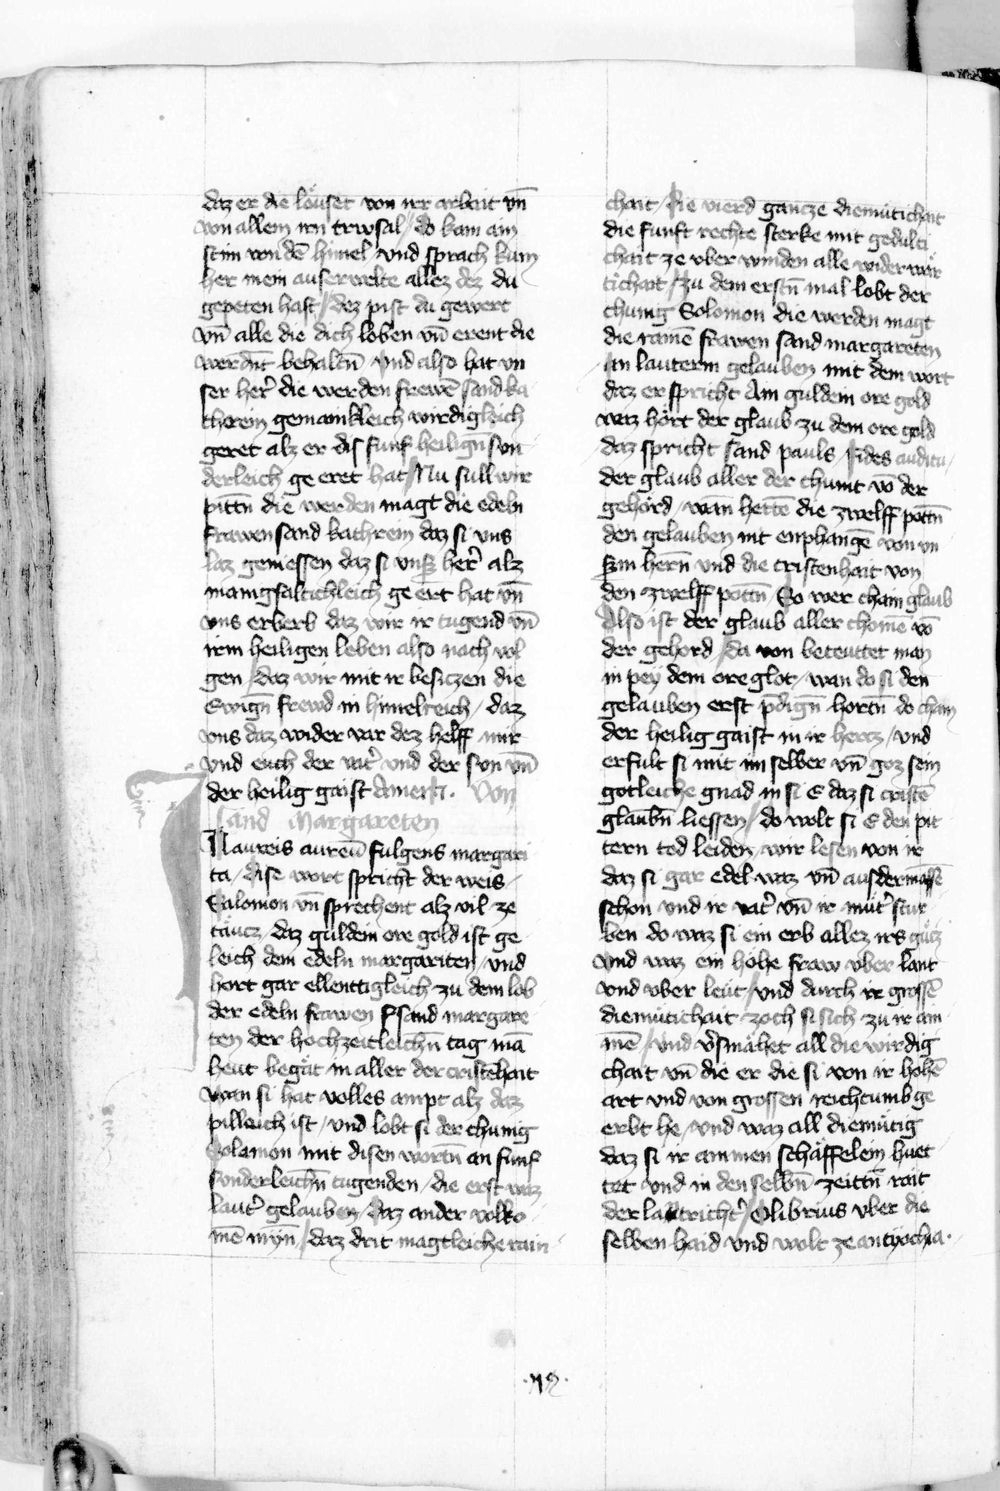 daz er die löuset von irr arbait vn̄
von allem irn trwsal / do kam ain
stim von dē himel / vnd sprach kum
her mein auserwelte allez dez du
gepeten hast / dez pist du gewert
vn̄ alle die dich loben vn̄ erent die
werdnt behaltn̄ / vnd also hat vn
ser her̄ die werden frewē sand ka
therein gemainkleich wirdigleich
geret alz er dis funf heilign̄ sun
derleich ge eret hat / Nu sull wir
pittn̄ die werden magt die edeln
frawen sand kathrein daz si vns
laz geniessen daz si vnser her̄ alz
manigfaltichleich ge eret hat vn̄
vns erberb daz wir ir tugend vn̄
irm heiligen leben also nach vol
gen / daz wir mit ir besiczen die
Ewign̄ frewd in himelreich / daz
vns daz wider var dez helff mir
vnd euch der vat̄ vnd der sun vn̄
der heilig gaist Amen. Von
sand Margareten
Inaureis aureū fulgens margari
ta / dise wort spricht der weis
Salomon vn̄ sprechent alz vil ze
täucz daz guldein ore gold ist ge
leich dem edeln margariten / vnd
hort gar ellenttigleich zu dem lob
der edeln frawen sand margare
ten der hochzeitleichn̄ tag mā
heut begät in aller der cristēhait
wan si hat volles ampt alz daz
pilleich ist / vnd lobt si der chunig
Solomon mit disen wortn̄ an funf
sunderleichn̄ tugenden / die erst waz
laut̄ gelauben / daz ander volko
mē mÿn̄ / daz drit magtleiche rain
chait / Die vierd gancze diemütichait
die funft rechte sterke mit gedulti
chait ze vber winden alle widerwär
tichait / zu dem erstn̄ mal lobt der
chunig Solomon die werden magt
die rainē frawen sand margareten
an lauterm gelauben mit dem wort
daz er spricht Am guldein ore gold
waz hört der glaub zu dem ore gold
daz spricht sand pauls / fides auditu /
der glaub aller der chumt vō der
gehörd / wan̄ hettē die zwelff pottn̄
den gelauben nit enphangē von vn
serm hern̄ vnd die cristenhait von
den zwelff pottn̄ / So wer chain glaub
Also ist der glaub aller chomē vō
der gehord / da von beteuttet man
in pey dem ore glot / wan do si den
gelauben erst pdign̄ hortn̄ do cham
der heilig gaist in ir hertz / vnd
erfult si mit im selber vn̄ goz sein
gotleiche gnad in si E daz si cristē
glaubn̄ liessen / do wolt si E den pit
tern tod leiden / wir lesen von ir
daz si gar edel waz vn̄ ausdermassē
schon vnd ir vat̄ vn̄ ir mut̄ stur
ben do waz si ein erb allez irs gutz
vnd waz ein hohe fraw vber lant
vnd vber leut / vnd durch ir grossē
diemütichait zoch si sich zu ir am
mē / vnd v̄smähet all die wirdig
chait vn̄ die er die si von ir hohē
art vnd von grossen reichtumb ge
erbt he / vnd waz all diemütig
daz si ir ammen schäffelein huet
tet vnd in den selbn̄ zeittn̄ rait
der lantricht̄ Olibrius vber die
selben haid vnd wolt ze antyochia.